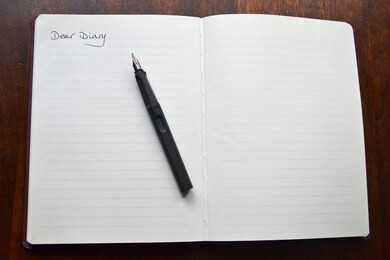 Dear Diary